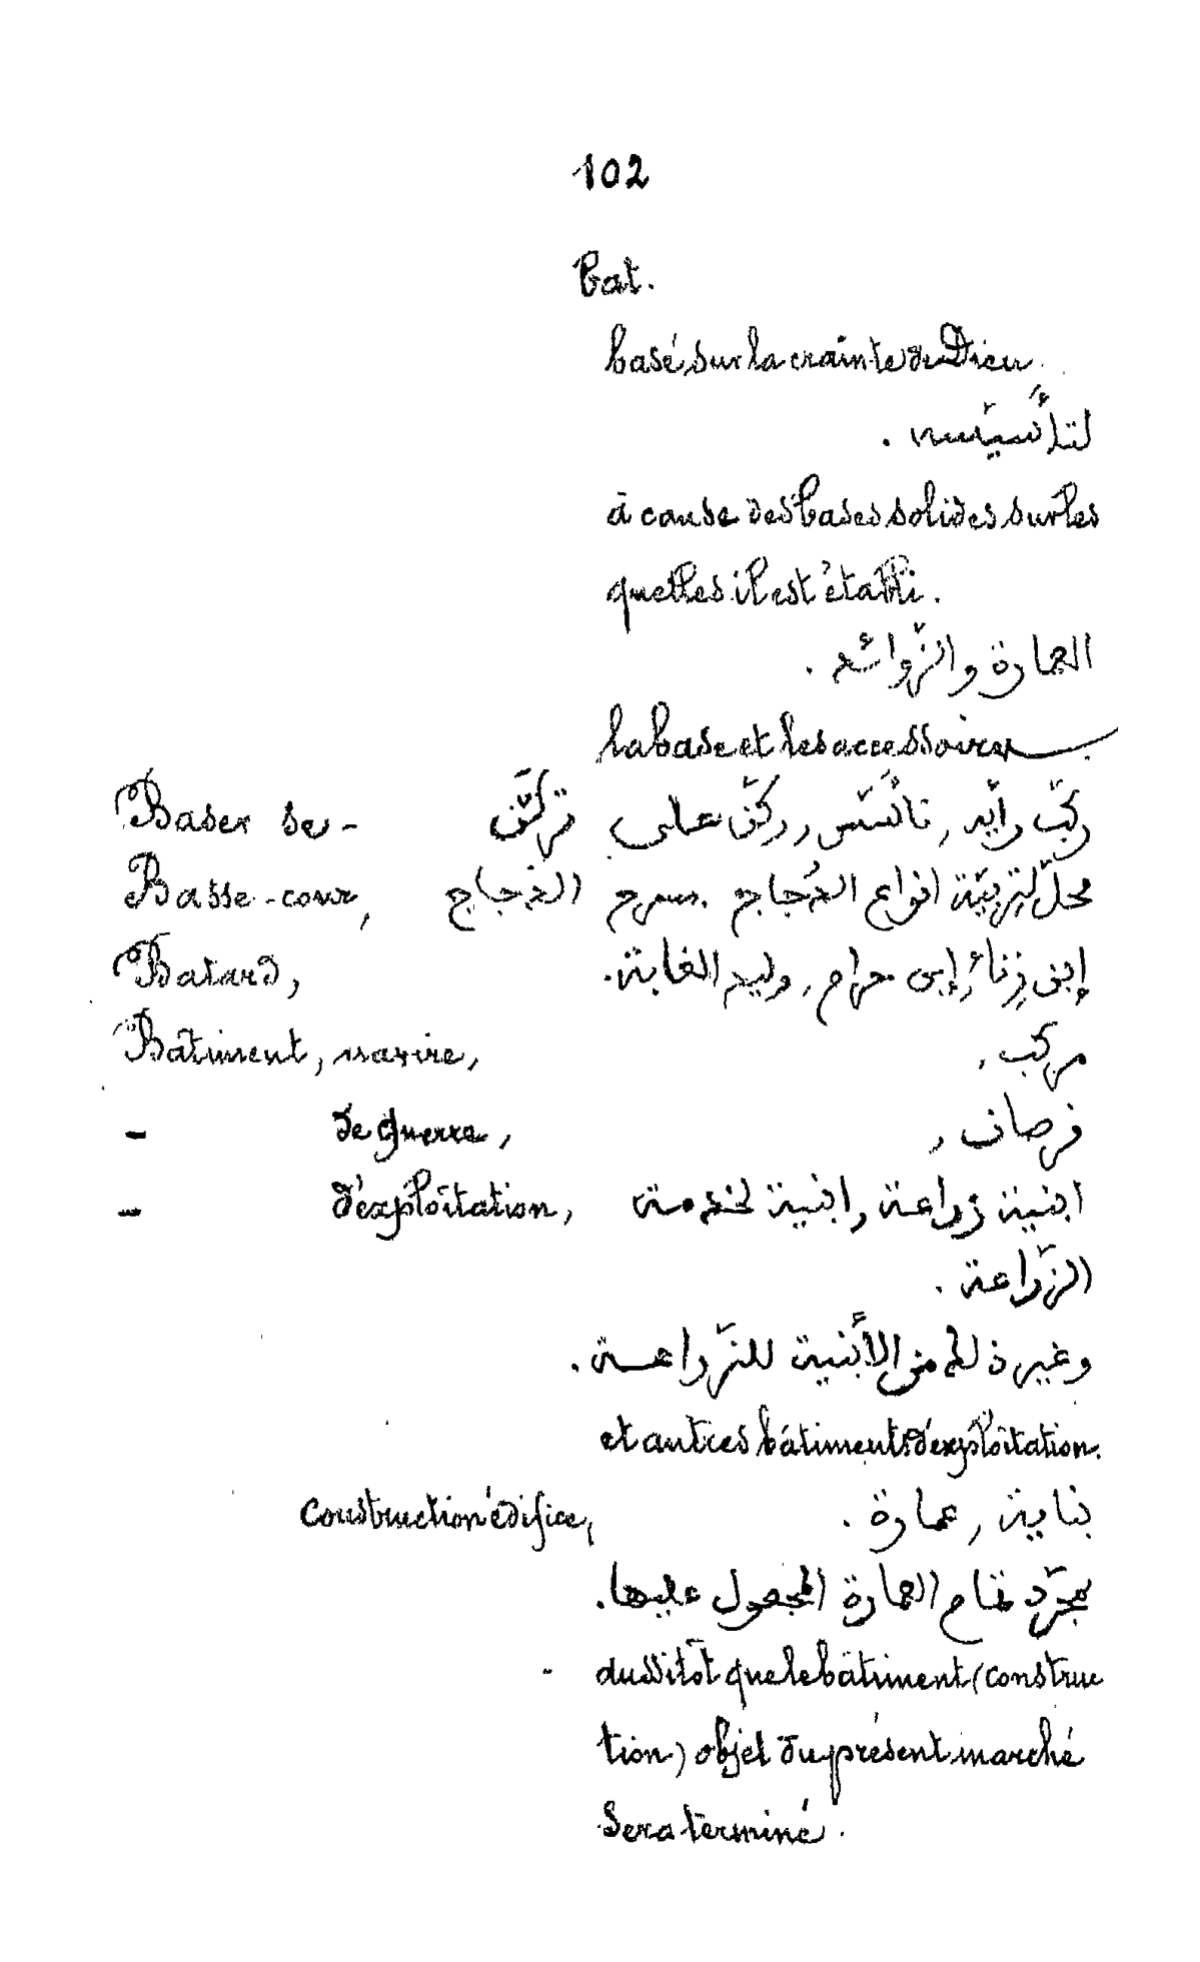 102
Bat.
basé sur la crainte de Dieu.
لتأسيسه .
à cause des bases solides sur les
quelles il est établi.
العمارة والزّوائد .
la base et les accessoires
Baser se - تركّن ركّب رأيه, تأسّس, ركّن على
Basse-cour, محلّ لتربيّة انواع الدُجاج. مسرح الدّجاج
Batard, إبن زناءٍ, إبن حرام, وليد الغابة.
Bâtiment, navire, مركب,
- de guerre, فرصان,
- d'exploitation, ابنية زراعة, ابنية لخدمة
الزّراعة .
وغير ذلك من الأبنية للزّراعة .
et autres bâtiments d'exploitation.
Construction édifice, بناية, عمارة .
بمجرّد تمام العمارة المجعول عليها.
aussitôt que le bâtiment (construc
tion) objet du présent marché
sera terminé.